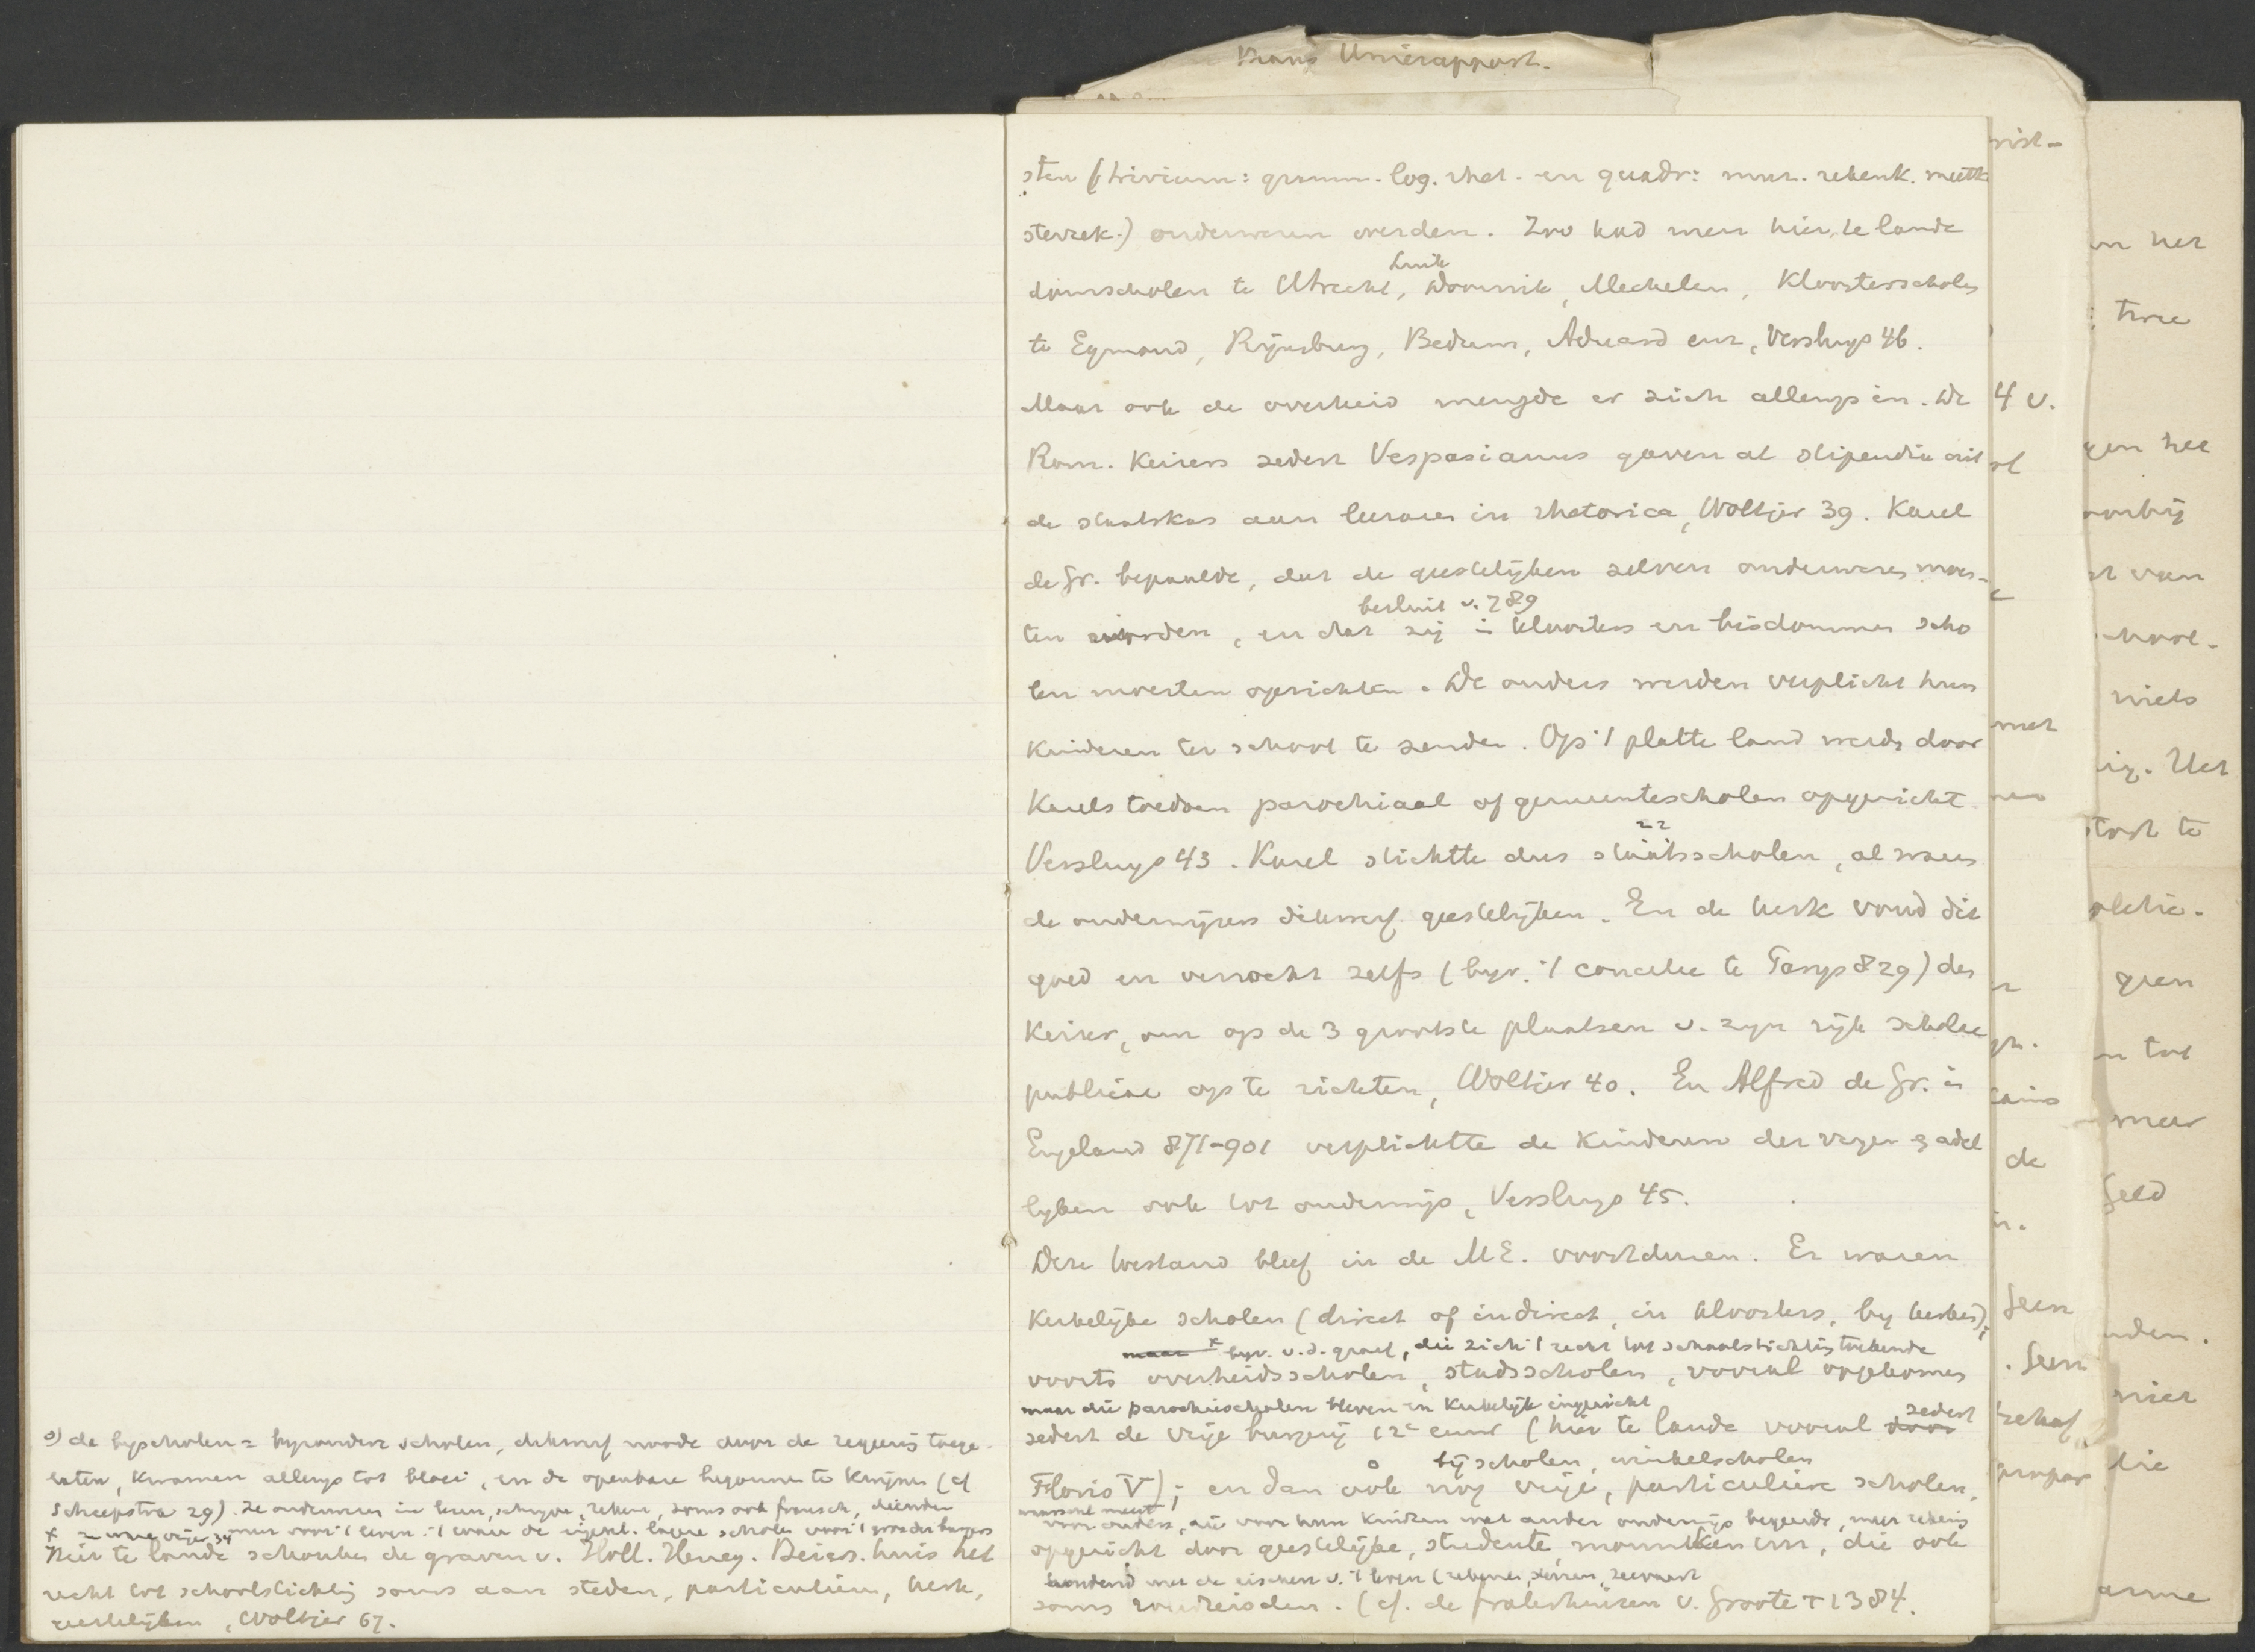 Unierapport.
sten (trivium: gramm. log. rhet. en quadr: muz. rekenk. meetk
sterrek.) onderwezen werden. Zoo had men hier te lande
Luik
domscholen te Utrecht, Doornik, Mechelen, Kloosterscholen
te Egmond, Rijnsburg, Bedum, Aduard enz, Versluys 46.
Maar ook de overheid mengde er zich allengs in. De
Rom. Keizers sedert Vespasianus gaven al stipendia uit
de staatskas aan leeraren in rhetorica, Woltjer 39. Karel
de Gr. bepaalde, dat de geestelijken zelven onderwezen moes-
besluit v. 789
ten worden, en dat zij in kloosters en bisdommen scho
len moesten oprichten. De ouders werden verplicht hun
Kinderen ter school te zenden. Op 't platte land werden door
Karels toedoen parochiaal of gemeentescholen opgericht
Versluys 43. Karel stichtte dus staatsscholen, al waren
de onderwijzers dikwerf geestelijken. En de kerk vond dit
goed en verzocht zelfs (byv. 't concilie te Parys 829) den
Keizer, om op de 3 grootste plaatsen v. zyn rijk scholae
publicae op te richten, Woltjer 40. En Alfred de Gr. in
Engeland 871-901 verplichtte de Kinderen der vryen & adel
lyken ook tot onderwijs, Versluys 45.
Deze toestand bleef in de ME. voortduren. Er waren
Kerkelijke scholen (direct of indirect, in kloosters, by kerken);
x byv. v. d. graaf, die zich 't recht tot schoolstichting toekende
voorts overheidsscholen, stadsscholen, vooral opgekomen
maar die parochiescholen bleven en Kerkelijk ingericht
sedert de vrije burgerij 12e eeuw (hier te lande vooral sedert
bijscholen, winkelscholen
Floris V); en dan ook nog vrije, particuliere scholen,
voor ouders, die voor hun kinderen wat ander onderwijs begeerden, meer rekening
opgericht door geestelijke, studenten, monniken enz, die ook
houdend met de eischen v. 't leven (rekenen, zeevaart
soms rondreisden. (cf. de fraterhuizen v. Groote † 1384.
o) de byscholen = byzondere scholen, dikwerf noode door de regeering toege-
laten, kwamen allengs tot bloei, en de openbare begonnen te kwijnen (cf
Scheepstra 29). Ze onderwezen in lezen, schryven, rekenen, soms ook fransch, dienden
meer voor 't leven. 't waren de eigenl. lagere scholen voor 't
x Hier te lande schonken de graven v. Holl. Heneg. Beiers. huis het
recht tot schoolstichting soms aan steden, particulieren, kerk,
geestelijken, Woltjer 67.
4 v.
met
de
Geen
. Geen
twee
niets
Het
geen
meer
Geld
niet
die
arme